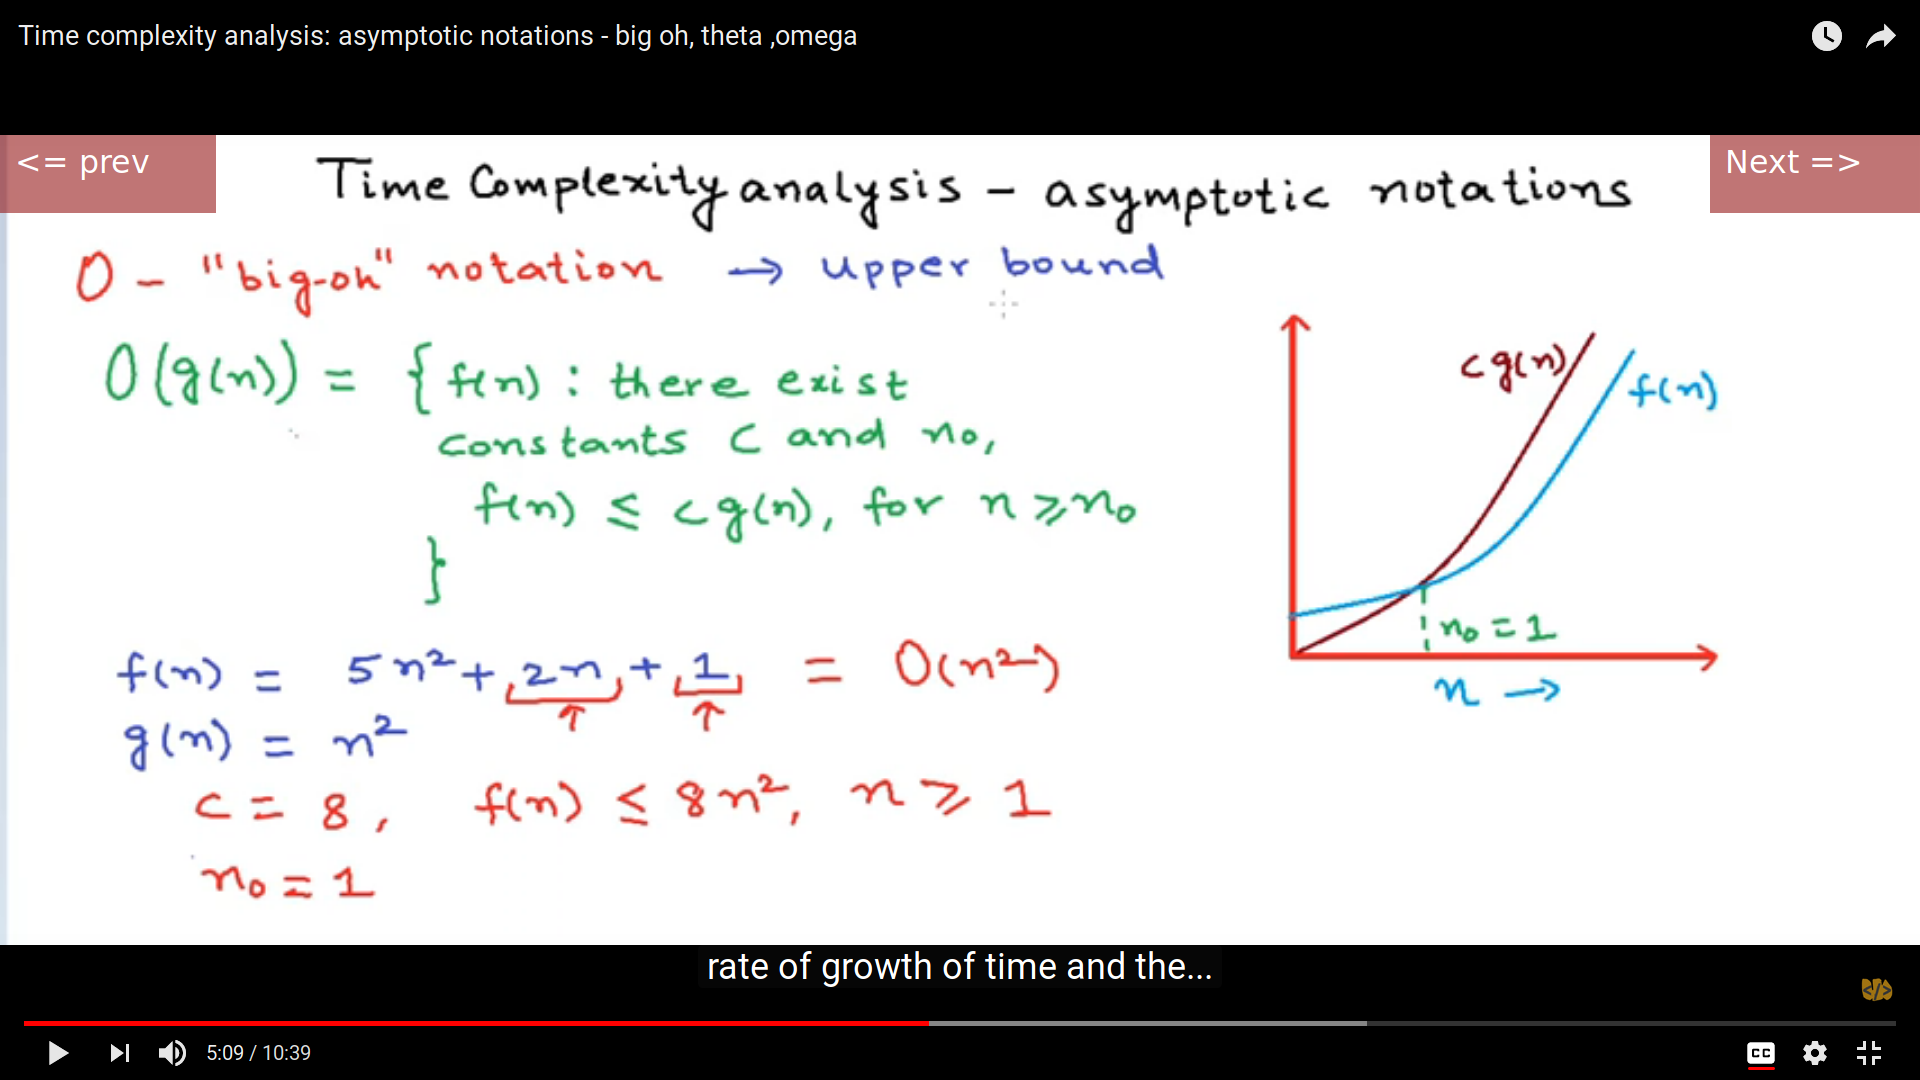 Time complexity analysis: asymptotic notations - big oh, theta ,omega
<= prev
Next =>
Time Complexity analysis - asymptotic notations
O - "big-oh" notation → upper bound
O(g(n)) = { f(n) : there exist
constants c and n₀,
f(n) ≤ cg(n), for n ≥ n₀
}
cg(n)
f(n)
n₀ = 1
n →
f(n) = 5n² + 2n + 1 = O(n²)
↑ ↑
g(n) = n²
c = 8, f(n) ≤ 8n², n ≥ 1
n₀ = 1
rate of growth of time and the...
</>
5:09 / 10:39
CC